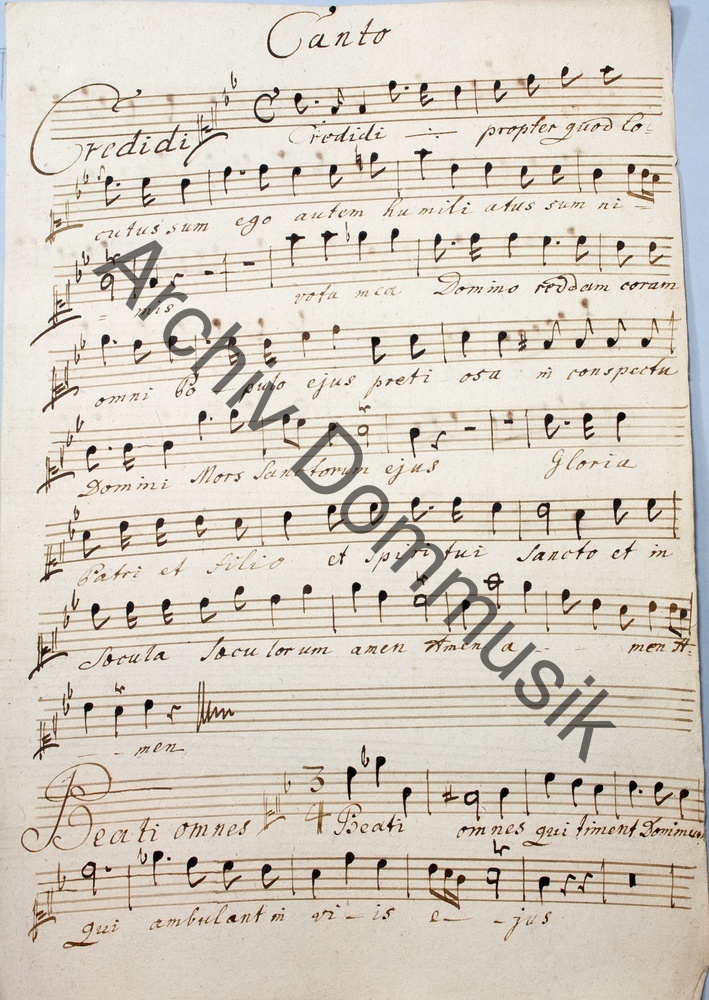 Canto
Credidi Credidi propter quod lo-
cutus sum ego autem humili atus sum ni-
- mis vota mea Domino reddam coram
omni Po pulo ejus preti osa in conspectu
Domini Mors Sanctorum ejus Gloria
Patri et filio et spiri tui Sancto et in
Sæcula Sæcu lorum amen Amen a - - men A-
- - men
Beati omnes 3/4 Beati omnes qui timent Dominum
qui ambulant in vi - is e - - jus
Archiv Dommusik